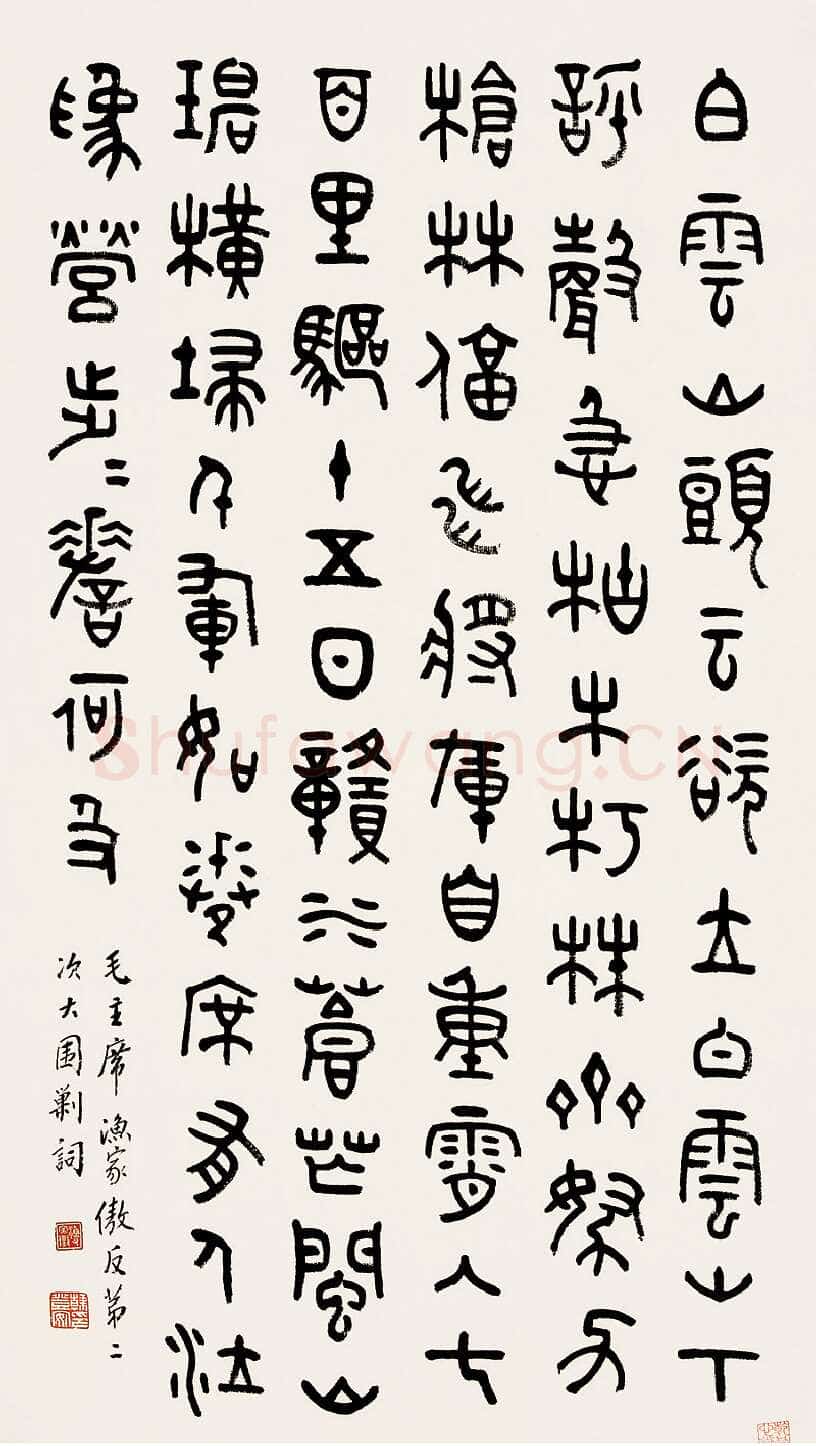 白雲山頭云欲立白雲山下
呼聲急枯木朽株齊努力
槍林偪飛將軍自重霄入七
百里驅十五日贛水暮茫閩山
碧橫埽千軍如卷席有人泣
為營步〻嗟何及
毛主席漁家傲反第二
次大圍剿詞
Shufawang.CN